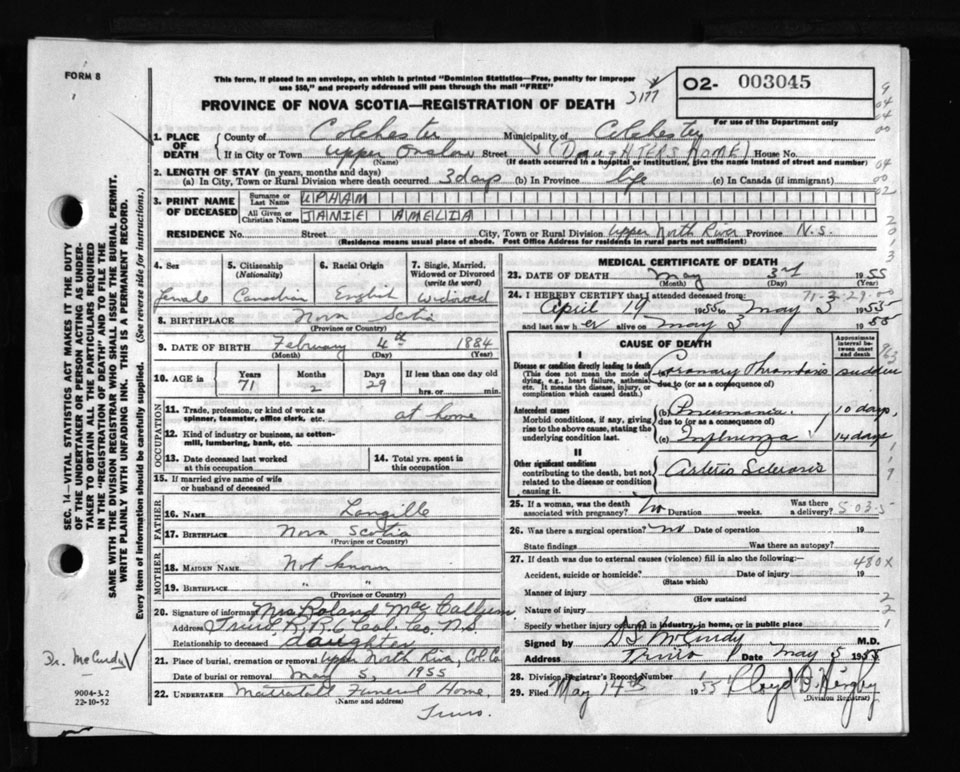 FORM 8
This form, if placed in an envelope, on which is printed "Dominion Statistics—Free, penalty for improper
use $50," and properly addressed will pass through the mail "FREE"
3177
O2- 003045
For use of the Department only
PROVINCE OF NOVA SCOTIA—REGISTRATION OF DEATH
1. PLACE OF DEATH
County of Colchester Municipality of Colchester
If in City or Town Upper Onslow Street (DAUGHTERS HOME) House No.
(Name) (If death occurred in a hospital or institution, give the name instead of street and number)
2. LENGTH OF STAY (in years, months and days)
(a) In City, Town or Rural Division where death occurred 3 days (b) In Province life (c) In Canada (if immigrant)
3. PRINT NAME OF DECEASED
Surname or Last Name UPHAM
All Given or Christian Names JAMIE AMELIA
RESIDENCE No. Street City, Town or Rural Division Upper North River Province N.S.
(Residence means usual place of abode. Post Office Address for residents in rural parts not sufficient)
4. Sex female
5. Citizenship (Nationality) Canadian
6. Racial Origin English
7. Single, Married, Widowed or Divorced (write the word) Widowed
8. BIRTHPLACE Nova Scotia
(Province or Country)
9. DATE OF BIRTH February 4th 1884
(Month) (Day) (Year)
10. AGE in Years 71 Months 2 Days 29 If less than one day old
hrs. or min.
OCCUPATION
11. Trade, profession, or kind of work as spinner, teamster, office clerk, etc. at home
12. Kind of industry or business, as cotton-mill, lumbering, bank, etc.
13. Date deceased last worked at this occupation
14. Total yrs. spent in this occupation
15. If married give name of wife or husband of deceased
FATHER
16. NAME Langille
17. BIRTHPLACE Nova Scotia
(Province or Country)
MOTHER
18. MAIDEN NAME Not known
19. BIRTHPLACE " "
(Province or Country)
20. Signature of informant Mrs Roland MacCallum
Address Truro, R.R.6 Col. Co. N.S.
Relationship to deceased daughter
21. Place of burial, cremation or removal Upper North River, Col. Co.
Date of burial, cremation or removal May 5, 1955
22. UNDERTAKER Mattatall Funeral Home,
(Name and address)
Truro.
MEDICAL CERTIFICATE OF DEATH
23. DATE OF DEATH May 3rd 1955
(Month) (Day) (Year)
71-2-29-00
24. I HEREBY CERTIFY that I attended deceased from:
April 19 1955 to May 3 1955
and last saw her alive on May 3 1955
CAUSE OF DEATH
Approximate interval between onset and death
I
Disease or condition directly leading to death
(This does not mean the mode of dying, e.g., heart failure, asthenia, etc. It means the disease, injury, or complication which caused death.)
(a) Coronary Thrombosis sudden
due to (or as a consequence of)
Antecedent causes
Morbid conditions, if any, giving rise to the above cause, stating the underlying condition last.
(b) Pneumonia. 10 days,
due to (or as a consequence of)
(c) Influenza 14 days
II
Other significant conditions
contributing to the death, but not related to the disease or condition causing it.
Arterio Sclerosis
25. If a woman, was the death associated with pregnancy? No Duration weeks. Was there a delivery?
26. Was there a surgical operation? no Date of operation 19
State findings Was there an autopsy?
27. If death was due to external causes (violence) fill in also the following:—
480X
Accident, suicide or homicide? Date of injury 19
(State which)
Manner of injury
(How sustained
Nature of injury
Specify whether injury occurred in industry, in home, or in public place
Signed by D S McCurdy M.D.
Address Truro Date May 5 1955
28. Division Registrar's Record Number
29. Filed May 14th 1955 Lloyd B.
(Division Registrar)
SEC. 14—VITAL STATISTICS ACT MAKES IT THE DUTY
OF THE UNDERTAKER OR PERSON ACTING AS UNDER-
TAKER TO OBTAIN ALL THE PARTICULARS REQUIRED
IN THE "REGISTRATION OF DEATH" AND TO FILE THE
SAME WITH THE DIVISION REGISTRAR WHO SHALL ISSUE THE BURIAL PERMIT.
WRITE PLAINLY WITH UNFADING INK. THIS IS A PERMANENT RECORD.
Every item of information should be carefully supplied. (See reverse side for instructions.)
Dr. McCurdy
9004-3.2
22-10-52